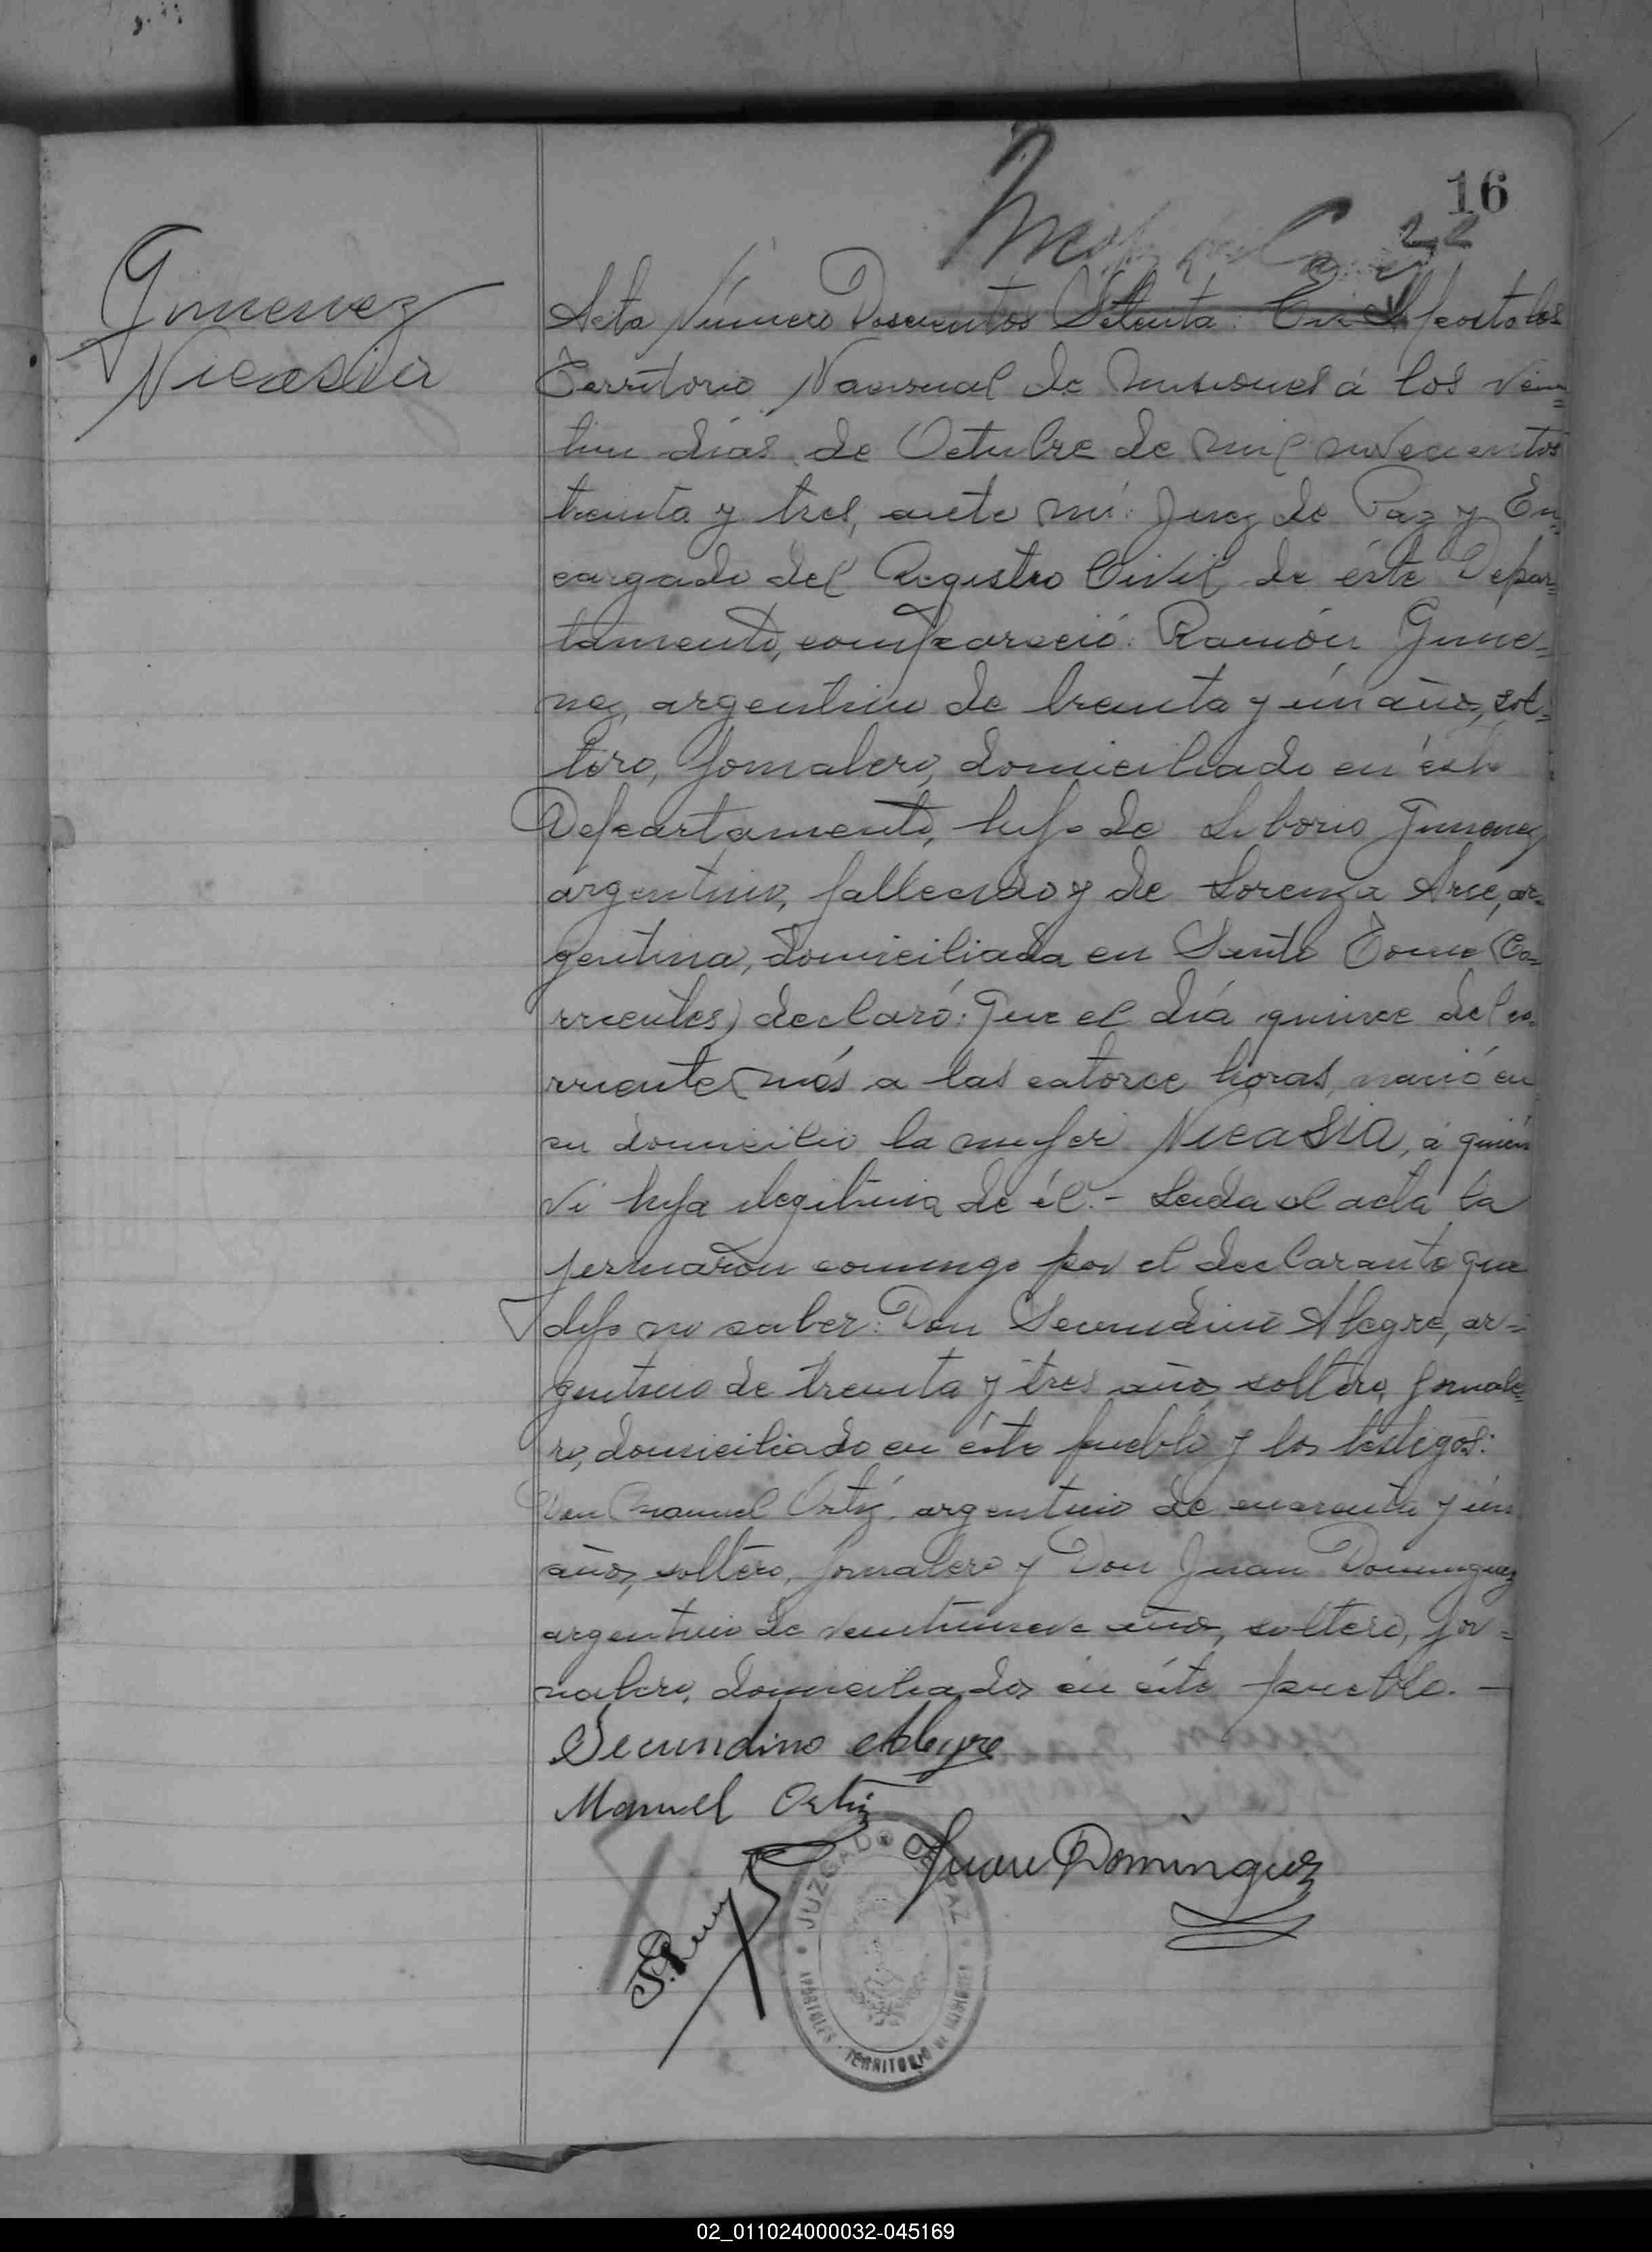 16
22
Gimenez
Nicasia
Acta Número Doscientos Setenta: En Apostoles
Territorio Nacional de Misiones á los vein=
tiun días de Octubre de mil novecientos
treinta y tres, ante mi: Juez de Paz y En=
cargado del Registro Civil de éste Depar=
tamento, compareció: Ramón Gime=
nez, argentino de treinta y ún años, sol=
tero, jornalero, domiciliado en éste
Departamento, hijo de Liborio Gimenez
argentino, fallecido y de Lorenza Arce, ar=
gentina, domiciliada en Santo Tome (Co=
rrientes) declaró: Que el día quince del co=
rriente mes a las catorce horas, nació en
su domicilio la mujer Nicasia, á quién
vi hija ilegitima de él.- Leida el acta la
firmaron conmigo por el declarante que
dijo no saber: Don Secundino Alegre, ar=
gentino de treinta y tres años soltero, jornale=
ro, domiciliado en éste pueblo y los testigos:
Don Manuel Ortíz, argentino de cuarenta y ún
años, soltero, jornalero y Don Juan Dominguez
argentino de veintinueve años, soltero, jor=
nalero, domiciliados en éste pueblo. —
Secundino Alegre
Manuel Ortiz
Juan Dominguez
JUZGADO DE PAZ
APOSTOLES - TERRITORIO DE MISIONES
02_011024000032-045169